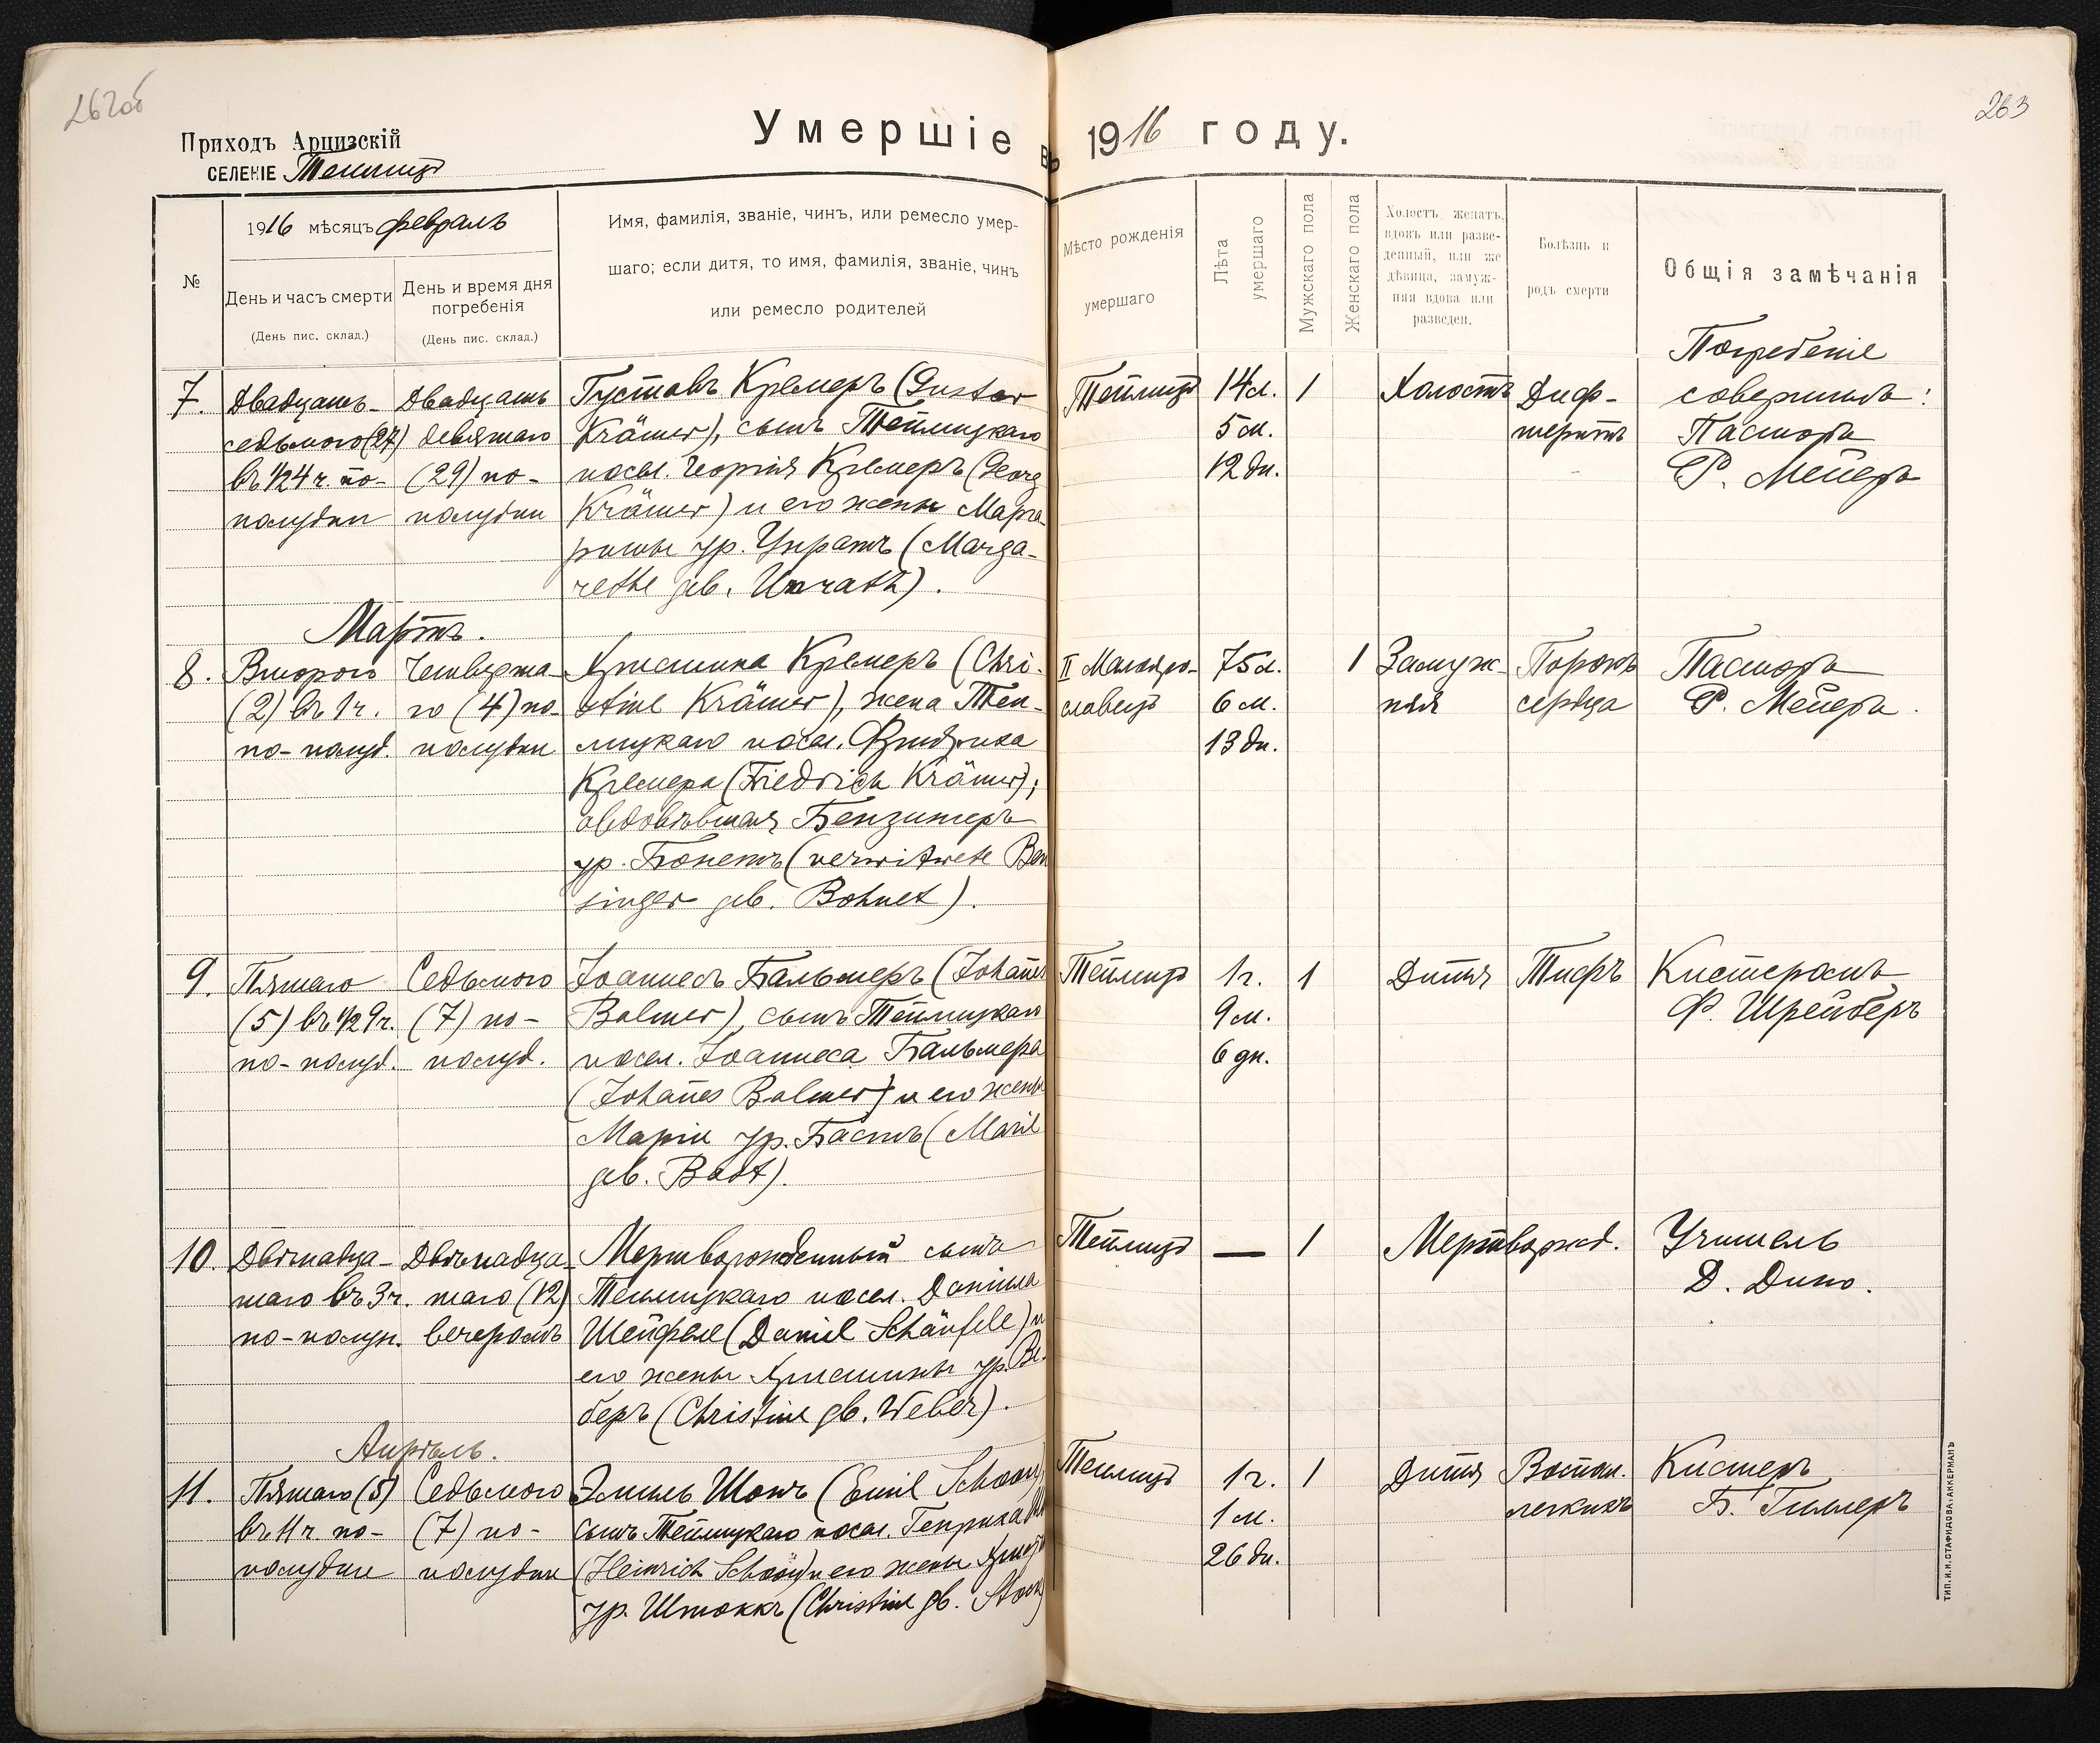 262об
263
Приходъ Арцизскій
СЕЛЕНІЕ Теплицъ
Умершіе въ 1916 году.
№
1916 мѣсяцъ февраль
День и часъ смерти
(День пис. склад.)
День и время дня
погребенія
(День пис. склад.)
Имя, фамилія, званіе, чинъ, или ремесло умер-
шаго; если дитя, то имя, фамилія, званіе, чинъ
или ремесло родителей
Мѣсто рожденія
умершаго
Лѣта
умершаго
Мужскаго пола
Женскаго пола
Холостъ, женатъ,
вдовъ или разве-
денный, или же
дѣвица, замуж-
няя вдова или
разведен.
Болѣзнь и
родъ смерти
Общія замѣчанія
7.
Двадцать-
седьмого (27)
въ 1/2 4 ч. по-
полудни
Двадцать
девятаго
(29) по-
полудни
Густавъ Кремеръ (Gustav
Krämer), сынъ Теплицкаго
посел. Георгія Кремеръ (Georg
Krämer) и его жены Марга-
риты ур. Унратъ (Marga-
rethe geb. Unrath).
Теплицъ
14 л.
5 м.
12 дн.
1
Холостъ
Диф-
теритъ
Погребеніе
совершилъ:
Пасторъ
Р. Мейеръ
Мартъ.
8.
Второго
(2) въ 1 ч.
по-полуд.
Четверта-
го (4) по-
полудни
Христина Кремеръ (Chri-
stine Krämer), жена Теп-
лицкаго посел. Фридриха
Кремера (Friedrich Krämer),
овдовѣвшая Бензингеръ
ур. Бонетъ (verwitwete Ben
singer geb. Bohnet).
II Малояро-
славецъ
75 л.
6 м.
13 дн.
1
Замуж-
няя
Порокъ
сердца
Пасторъ
Р. Мейеръ.
9.
Пятаго
(5) въ 1/2 9 ч.
по-полуд.
Седьмого
(7) по-
полуд.
Іоаннесъ Бальмеръ (Johañes
Balmer), сынъ Теплицкаго
посел. Іоаннеса Бальмера
(Johañes Balmer) и его жены
Маріи ур. Бастъ (Marie
geb. Bast).
Теплицъ
1 г.
9 м.
6 дн.
1
Дитя
Тифъ
Кистеромъ
Ф. Шрейберъ
10.
Двѣнадца-
таго въ 3 ч.
по-полун.
Двѣнадца-
таго (12)
вечеромъ
Мертворожденный сынъ
Теплицкаго посел. Даніила
Шейфеле (Daniel Schäufele) и
его жены Христины ур. Ве-
беръ (Christine gb. Weber).
Теплицъ
—
1
Мертворожд.
Учитель
Д. Дино.
Апрѣль.
11.
Пятаго (5)
въ 11 ч. по-
полудни
Седьмого
(7) по-
полудни
Эмиль Шонъ (Emil Schoon)
сынъ Теплицкаго посел. Генриха
(Heinrich Schoon) и его жены
ур. Штоккъ (Christine gb.
Теплицъ
1 г.
1 м.
26 дн.
1
Дитя
Воспал.
легкихъ
Кистеръ
Б. Гиллеръ
ТИП. И. Н. СТАФИДОВА, АККЕРМАНЪ